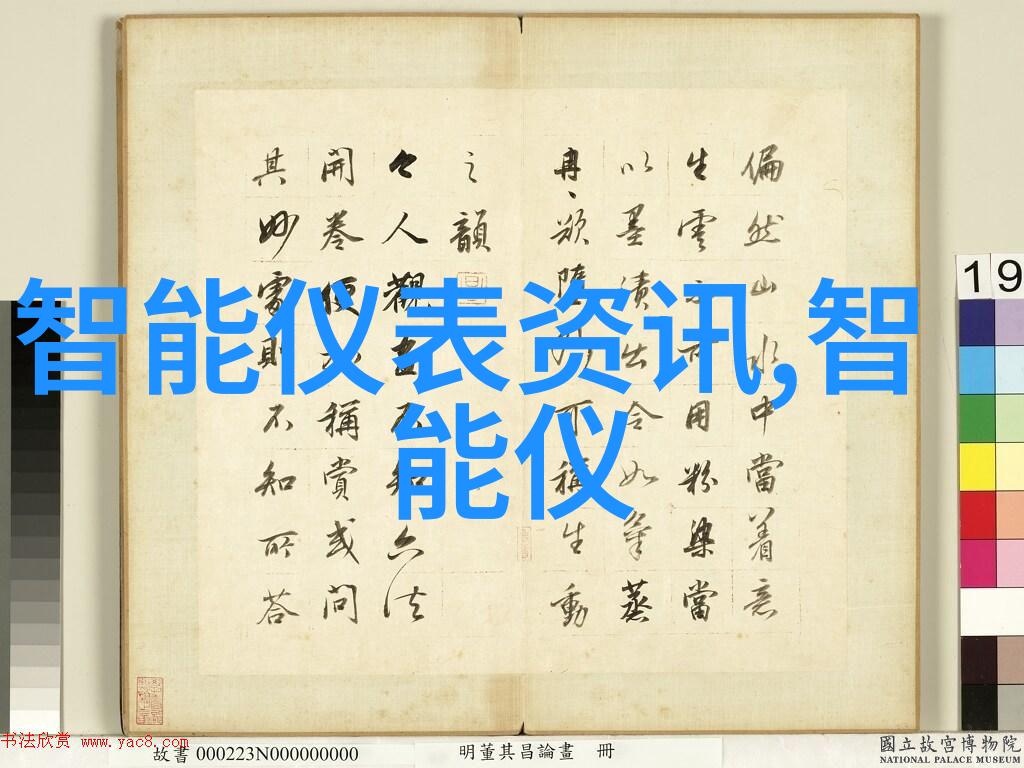 智能仪表资讯,智
能仪
偏然山水中當着意
生雲不可用粉染當
以墨漬出令如氣蒸
冉、欲墮乃可稱生動
之韻
今人觀畫不知六法
開卷便加稱賞或問
其妙處則不知所答
19
书法欣赏 www.yac8.com
故書 000223N000000000
明董其昌論畫 冊
國立故宮博物院
NATIONAL PALACE MUSEUM